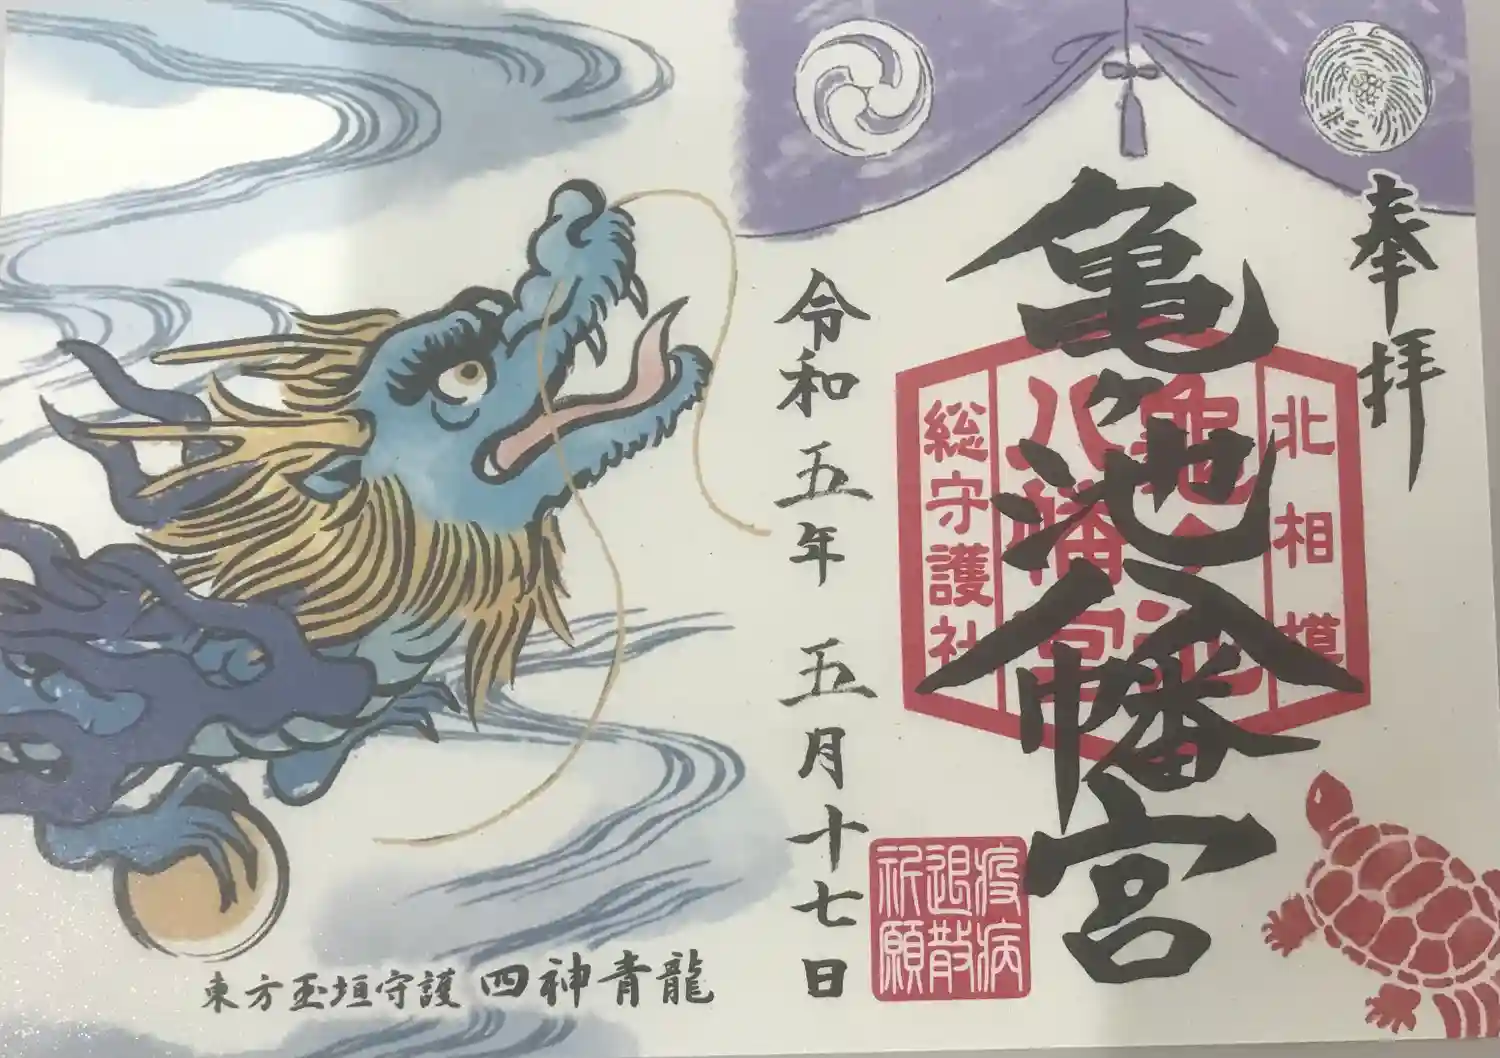 奉拝
亀ヶ池八幡宮
北相模
亀ヶ池
八幡宮
総守護社
疫病
退散
祈願
令和五年 五月十七日
四神青龍
東方玉垣守護